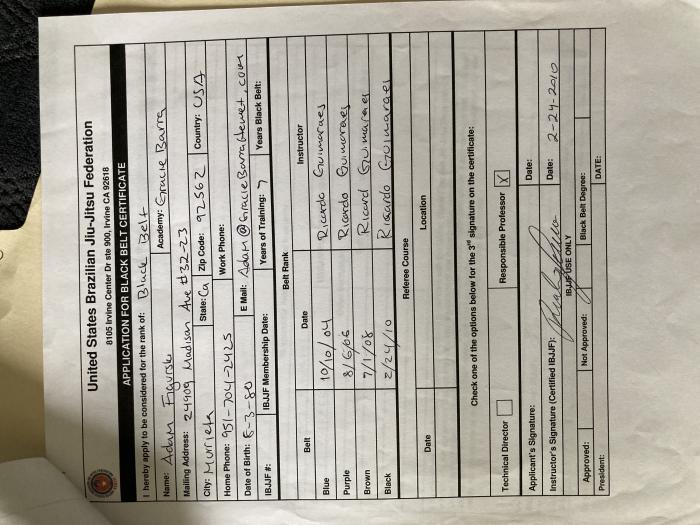 United States Brazilian Jiu-Jitsu Federation
8105 Irvine Center Dr ste 900, Irvine CA 92618
APPLICATION FOR BLACK BELT CERTIFICATE
I hereby apply to be considered for the rank of: Black Belt
Name: Adam Figurski Academy: Gracie Barra
Mailing Address: 24909 Madison Ave #32-23
City: Murieta State: Ca Zip Code: 92562 Country: USA
Home Phone: 951-704-2425 Work Phone:
Date of Birth: 8-3-80 E Mail: Adam@GracieBarraHemet.com
IBJJF #: IBJJF Membership Date: Years of Training: 7 Years Black Belt:
Belt Rank
Belt Date Instructor
Blue 10/10/04 Ricardo Guimaraes
Purple 8/6/06 Ricardo Guimaraes
Brown 7/1/08 Ricard Guimaraes
Black 2/24/10 Ricardo Guimaraes
Referee Course
Date Location
Check one of the options below for the 3rd signature on the certificate:
Technical Director Responsible Professor X
Applicant's Signature: Date:
Instructor's Signature (Certified IBJJF): Date: 2-24-2010
IBJJF USE ONLY
Approved: Not Approved: Black Belt Degree:
President: DATE: